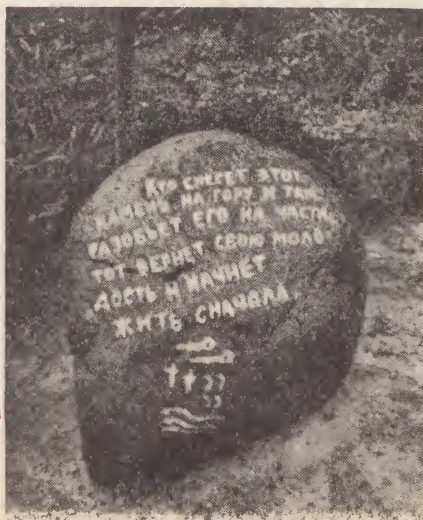 Кто снесет этот
камень на гору и там
разобьет его на части,
тот вернет свою моло-
дость и начнет
жить сначала.